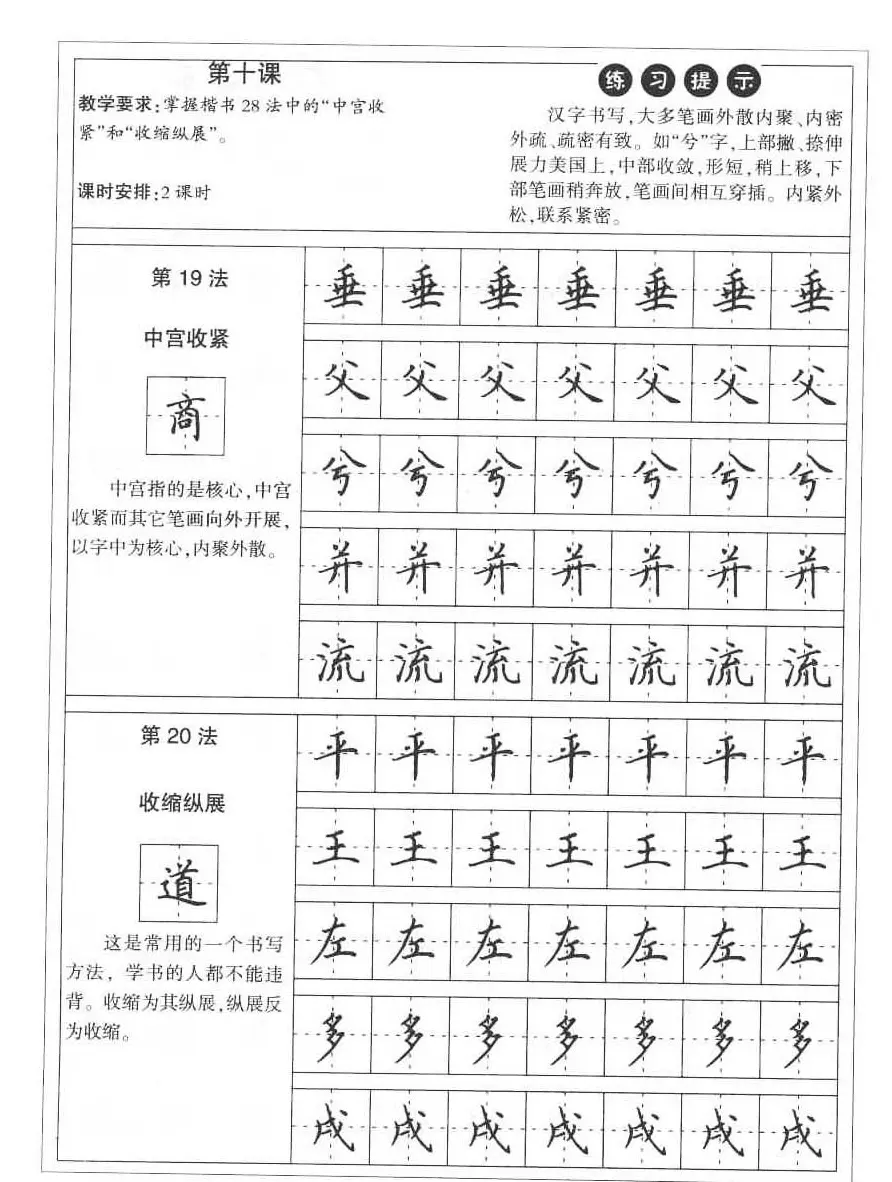 第十课
教学要求:掌握楷书 28 法中的“中宫收
紧”和“收缩纵展”。
课时安排:2 课时
练习提示
汉字书写,大多笔画外散内聚、内密
外疏、疏密有致。如“兮”字,上部撇、捺伸
展力美国上,中部收敛,形短,稍上移,下
部笔画稍奔放,笔画间相互穿插。内紧外
松,联系紧密。
第 19 法
中宫收紧
商
中宫指的是核心,中宫
收紧而其它笔画向外开展,
以字中为核心,内聚外散。
垂垂垂垂垂垂垂
父父父父父父父
兮兮兮兮兮兮兮
并并并并并并并
流流流流流流流
第 20 法
收缩纵展
道
这是常用的一个书写
方法，学书的人都不能违
背。收缩为其纵展,纵展反
为收缩。
平平平平平平平
王王王王王王王
左左左左左左左
多多多多多多多
成成成成成成成